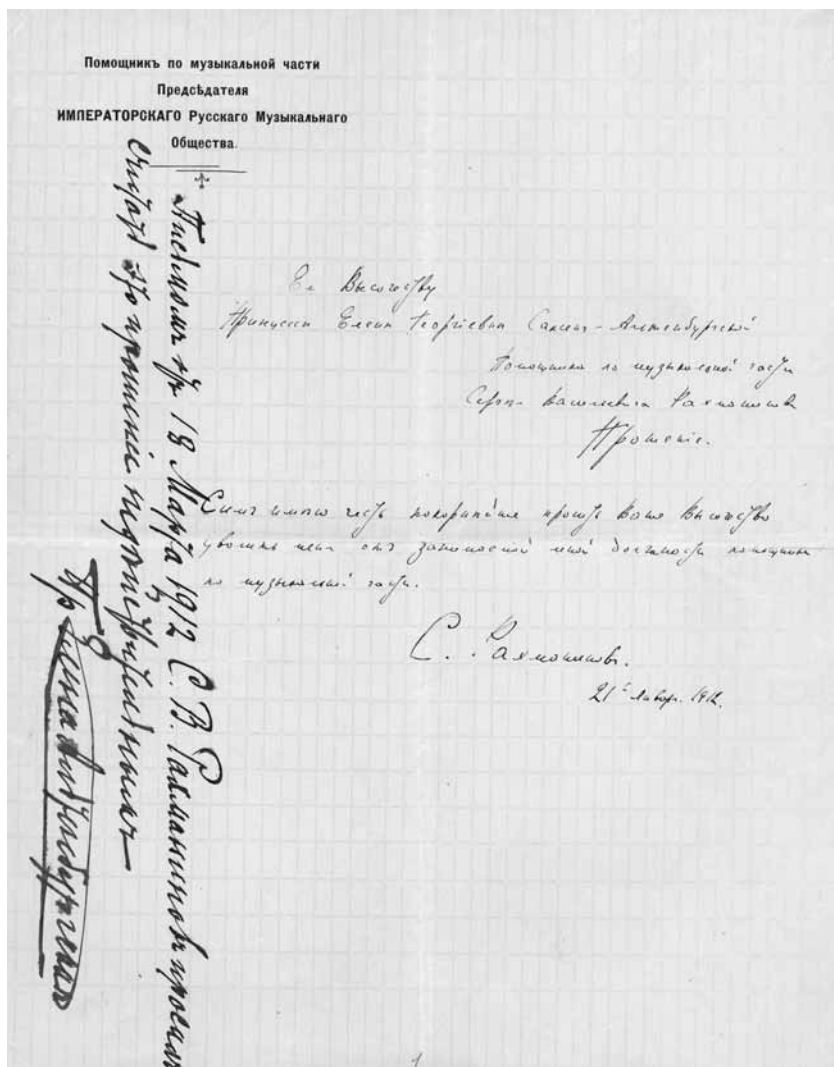 Помощникъ по музыкальной части
Предсѣдателя
ИМПЕРАТОРСКАГО Русскаго Музыкальнаго
Общества.
Ея Высочеству
Принцессѣ Еленѣ Георгіевнѣ Саксенъ-Альтенбургской
Помощника по музыкальной части
Сергѣя Васильевича Рахманинова
Прошеніе.
Симъ имѣю честь покорнѣйше просить Ваше Высочество
уволить меня отъ занимаемой мной должности помощника
по музыкальной части.
С. Рахманиновъ.
21е Январ. 1912.
Письмомъ отъ 18 Марта 1912 С. В. Рахманиновъ просилъ
считать это прошеніе недѣйствительнымъ
Елена Альтенбургская
1